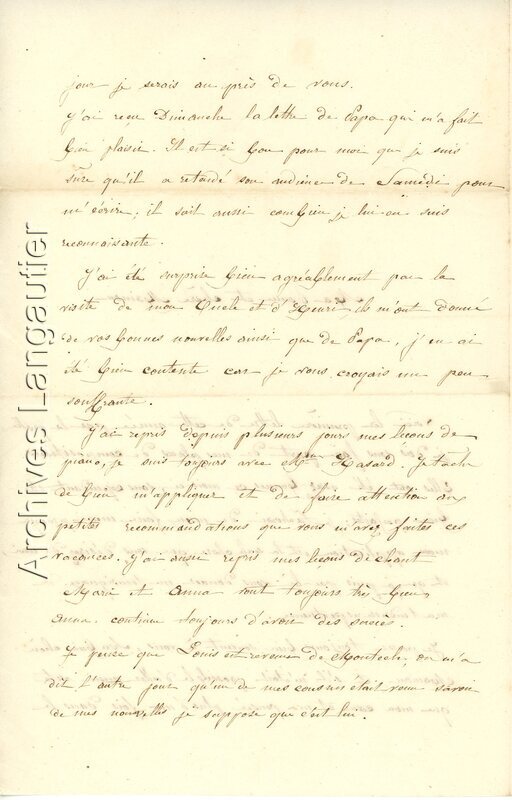 jour je serais auprès de vous.
J'ai reçu Dimanche la lettre de Papa qui m'a fait
bien plaisir. Il est si bon pour moi que je suis
sûre qu'il a retardé son audience de Samedi pour
m'écrire, il sait aussi combien je lui en suis
reconnaissante.
J'ai été surprise bien agréablement par la
visite de mon Oncle et d'Henri, ils m'ont donné
de vos bonnes nouvelles ainsi que de Papa, j'en ai
été bien contente car je vous croyais un peu
souffrante.
J'ai repris depuis plusieurs jours mes leçons de
piano, je suis toujours avec Hasard. Je tache
de bien m'appliquer et de faire attention aux
petites recommandations que vous m'avez faites ces
vacances. J'ai aussi repris mes leçons de chant
Marie et Anna vont toujours très bien,
Anna continue toujours d'avoir des succès.
Je pense que Louis est revenu de Montech, on m'a
dit l'autre jour qu'un de mes cousins était venu savoir
de mes nouvelles je suppose que c'est lui.
Archives Langautier